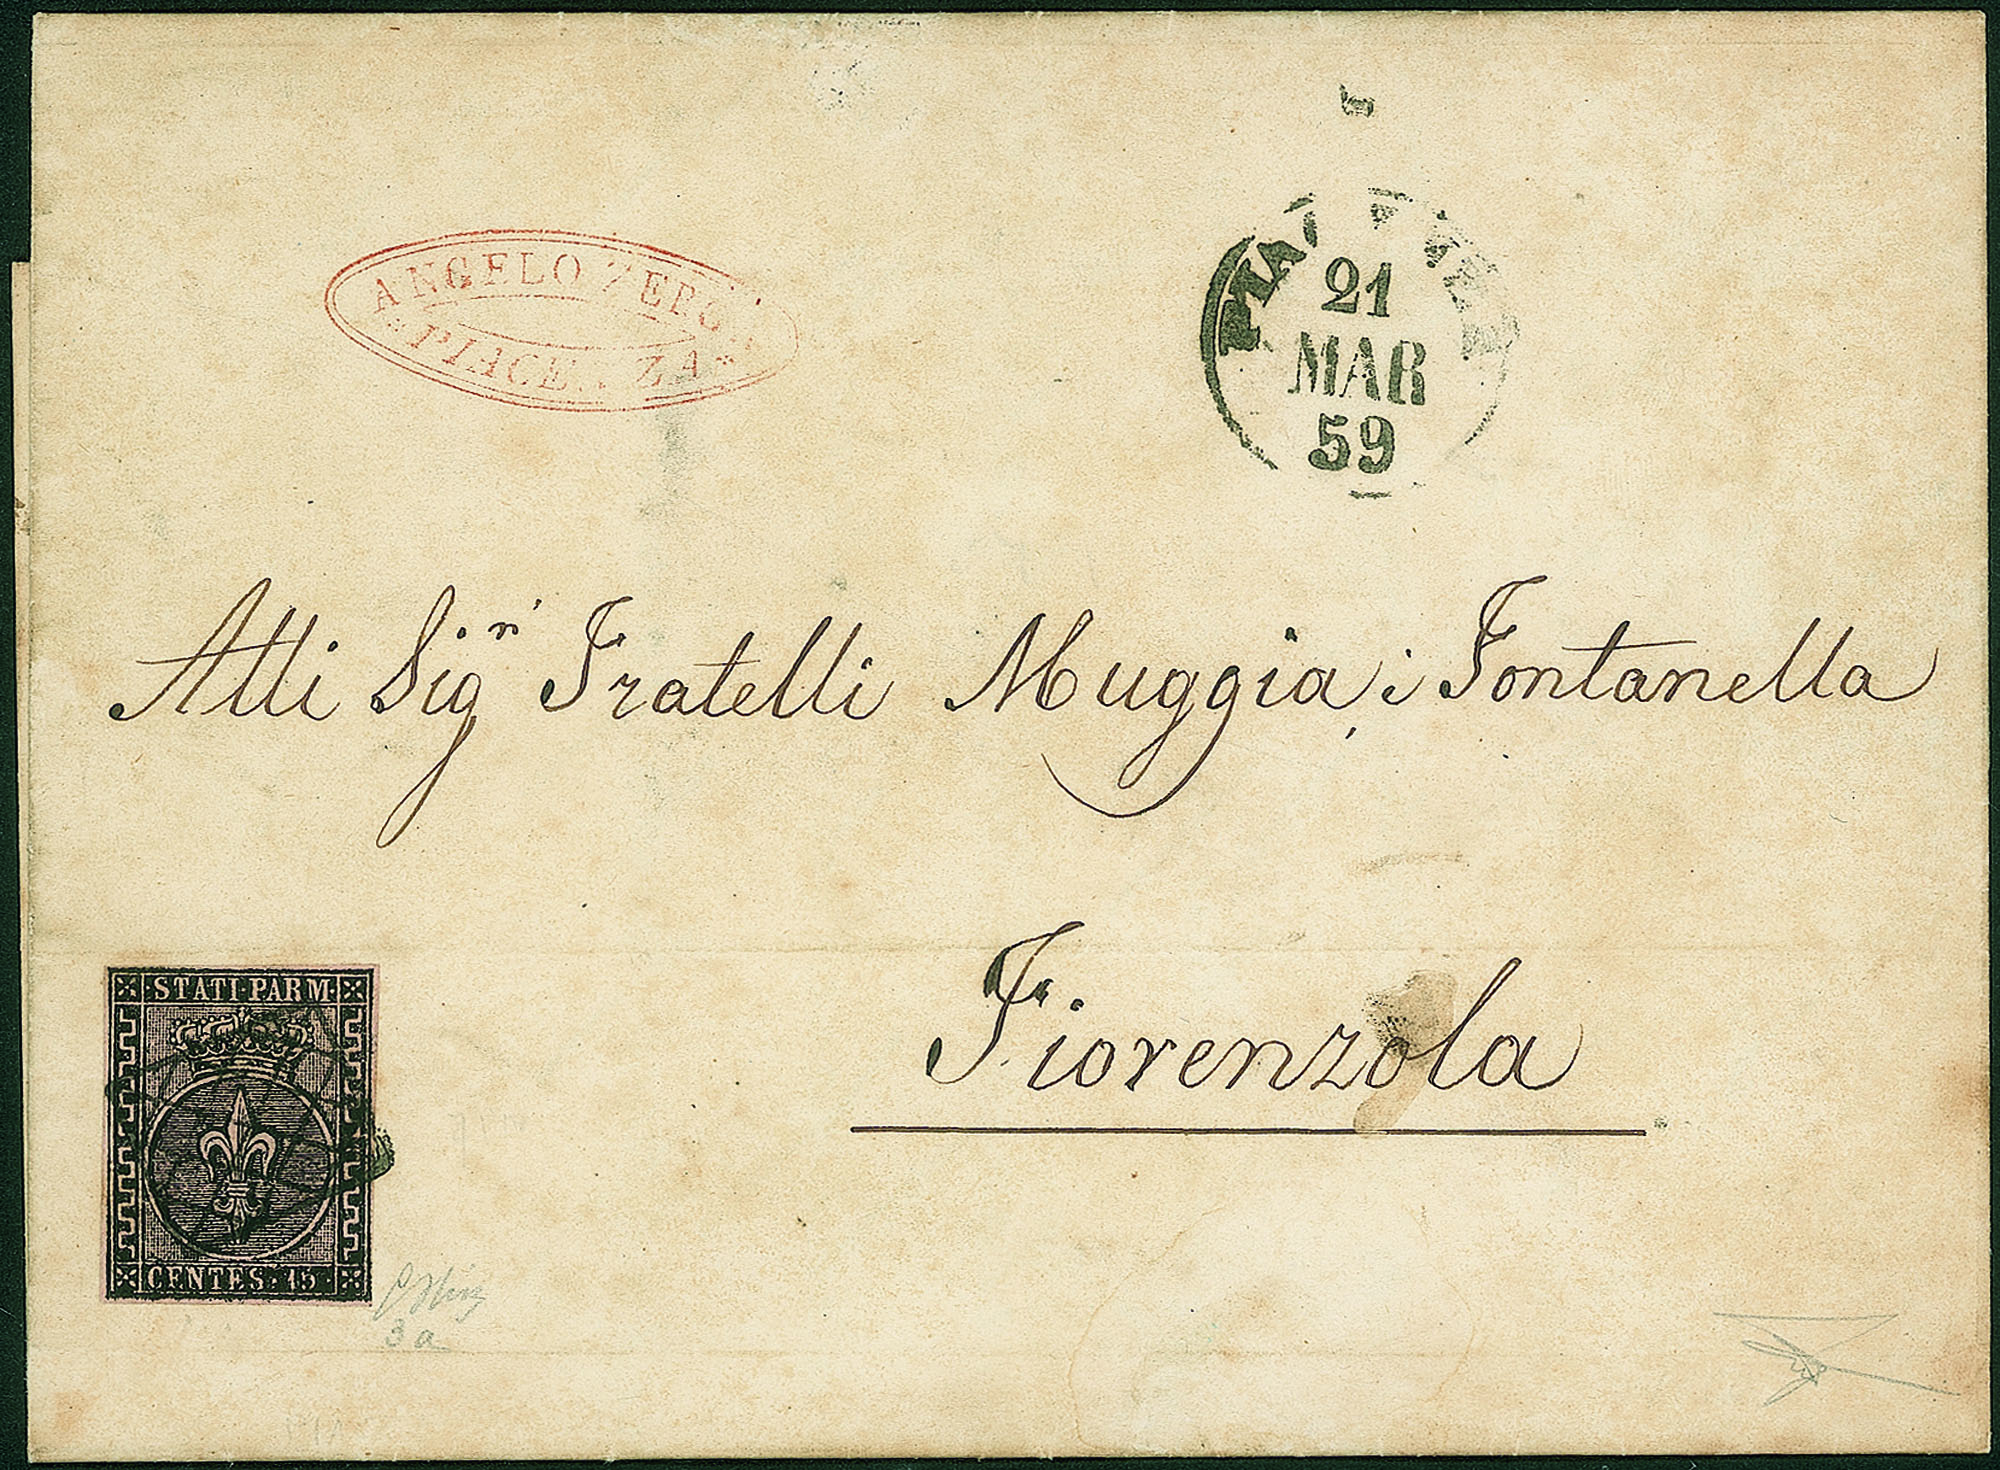 ANGELO
PIACE ZA
21
MAR
59
Alli Sig.ri Fratelli Muggia, i Fontanella
Fiorenzola
STATI·PARM·
CENTES·15·
3a